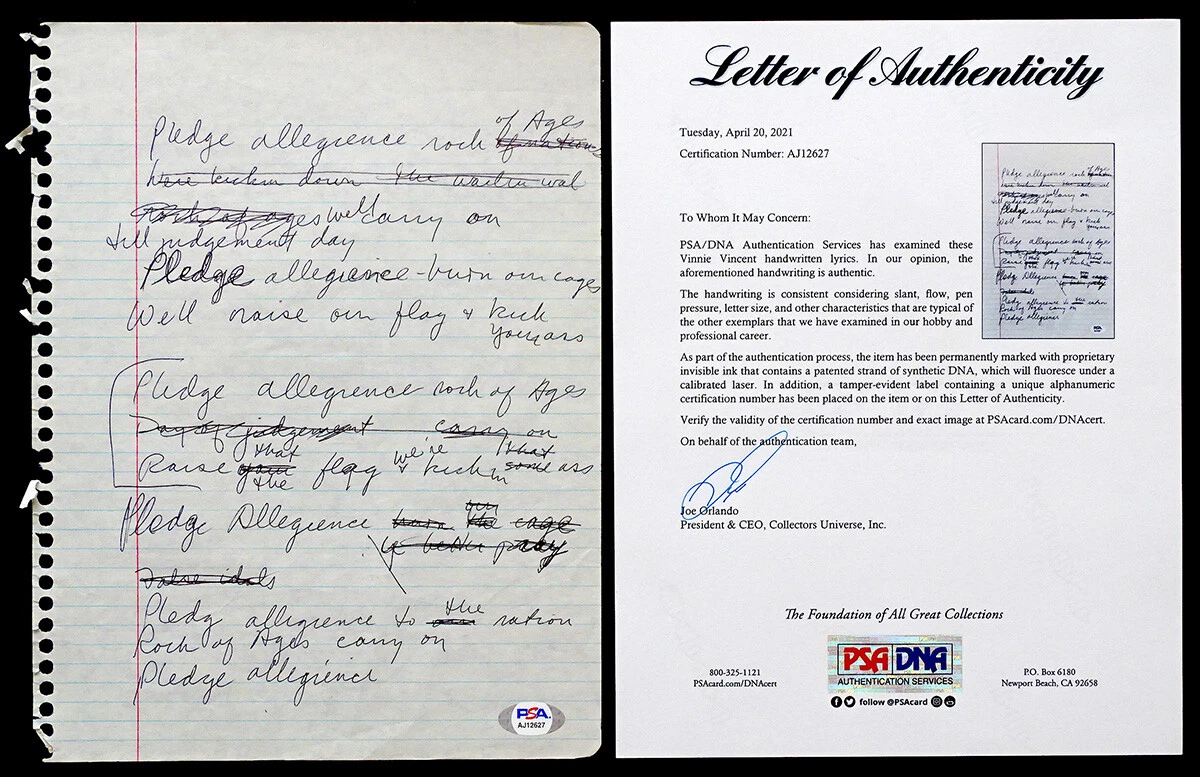 Pledge allegience rock of Ages
of nations
Were kickin down the wailin wal
Rock of ages we'll carry on
till judgement day
Pledge allegience - burn our cages
We'll raise our flag & kick
your ass
Pledge allegience rock of Ages
Day of judgement carry on
that we're that
Raise your flag & kickin some ass
the
Pledge Allegience burn the cage
our
better pray
False idols
Pledg allegience to the nation
Rock of Ages carry on
Pledge allegienc
PSA
AJ12627
Letter of Authenticity
Tuesday, April 20, 2021
Certification Number: AJ12627
To Whom It May Concern:
PSA/DNA Authentication Services has examined these
Vinnie Vincent handwritten lyrics. In our opinion, the
aforementioned handwriting is authentic.
The handwriting is consistent considering slant, flow, pen
pressure, letter size, and other characteristics that are typical of
the other exemplars that we have examined in our hobby and
professional career.
As part of the authentication process, the item has been permanently marked with proprietary
invisible ink that contains a patented strand of synthetic DNA, which will fluoresce under a
calibrated laser. In addition, a tamper-evident label containing a unique alphanumeric
certification number has been placed on the item or on this Letter of Authenticity.
Verify the validity of the certification number and exact image at PSAcard.com/DNAcert.
On behalf of the authentication team,
Joe Orlando
President & CEO, Collectors Universe, Inc.
The Foundation of All Great Collections
PSA DNA
AUTHENTICATION SERVICES
800-325-1121
PSAcard.com/DNAcert
follow @PSAcard
P.O. Box 6180
Newport Beach, CA 92658